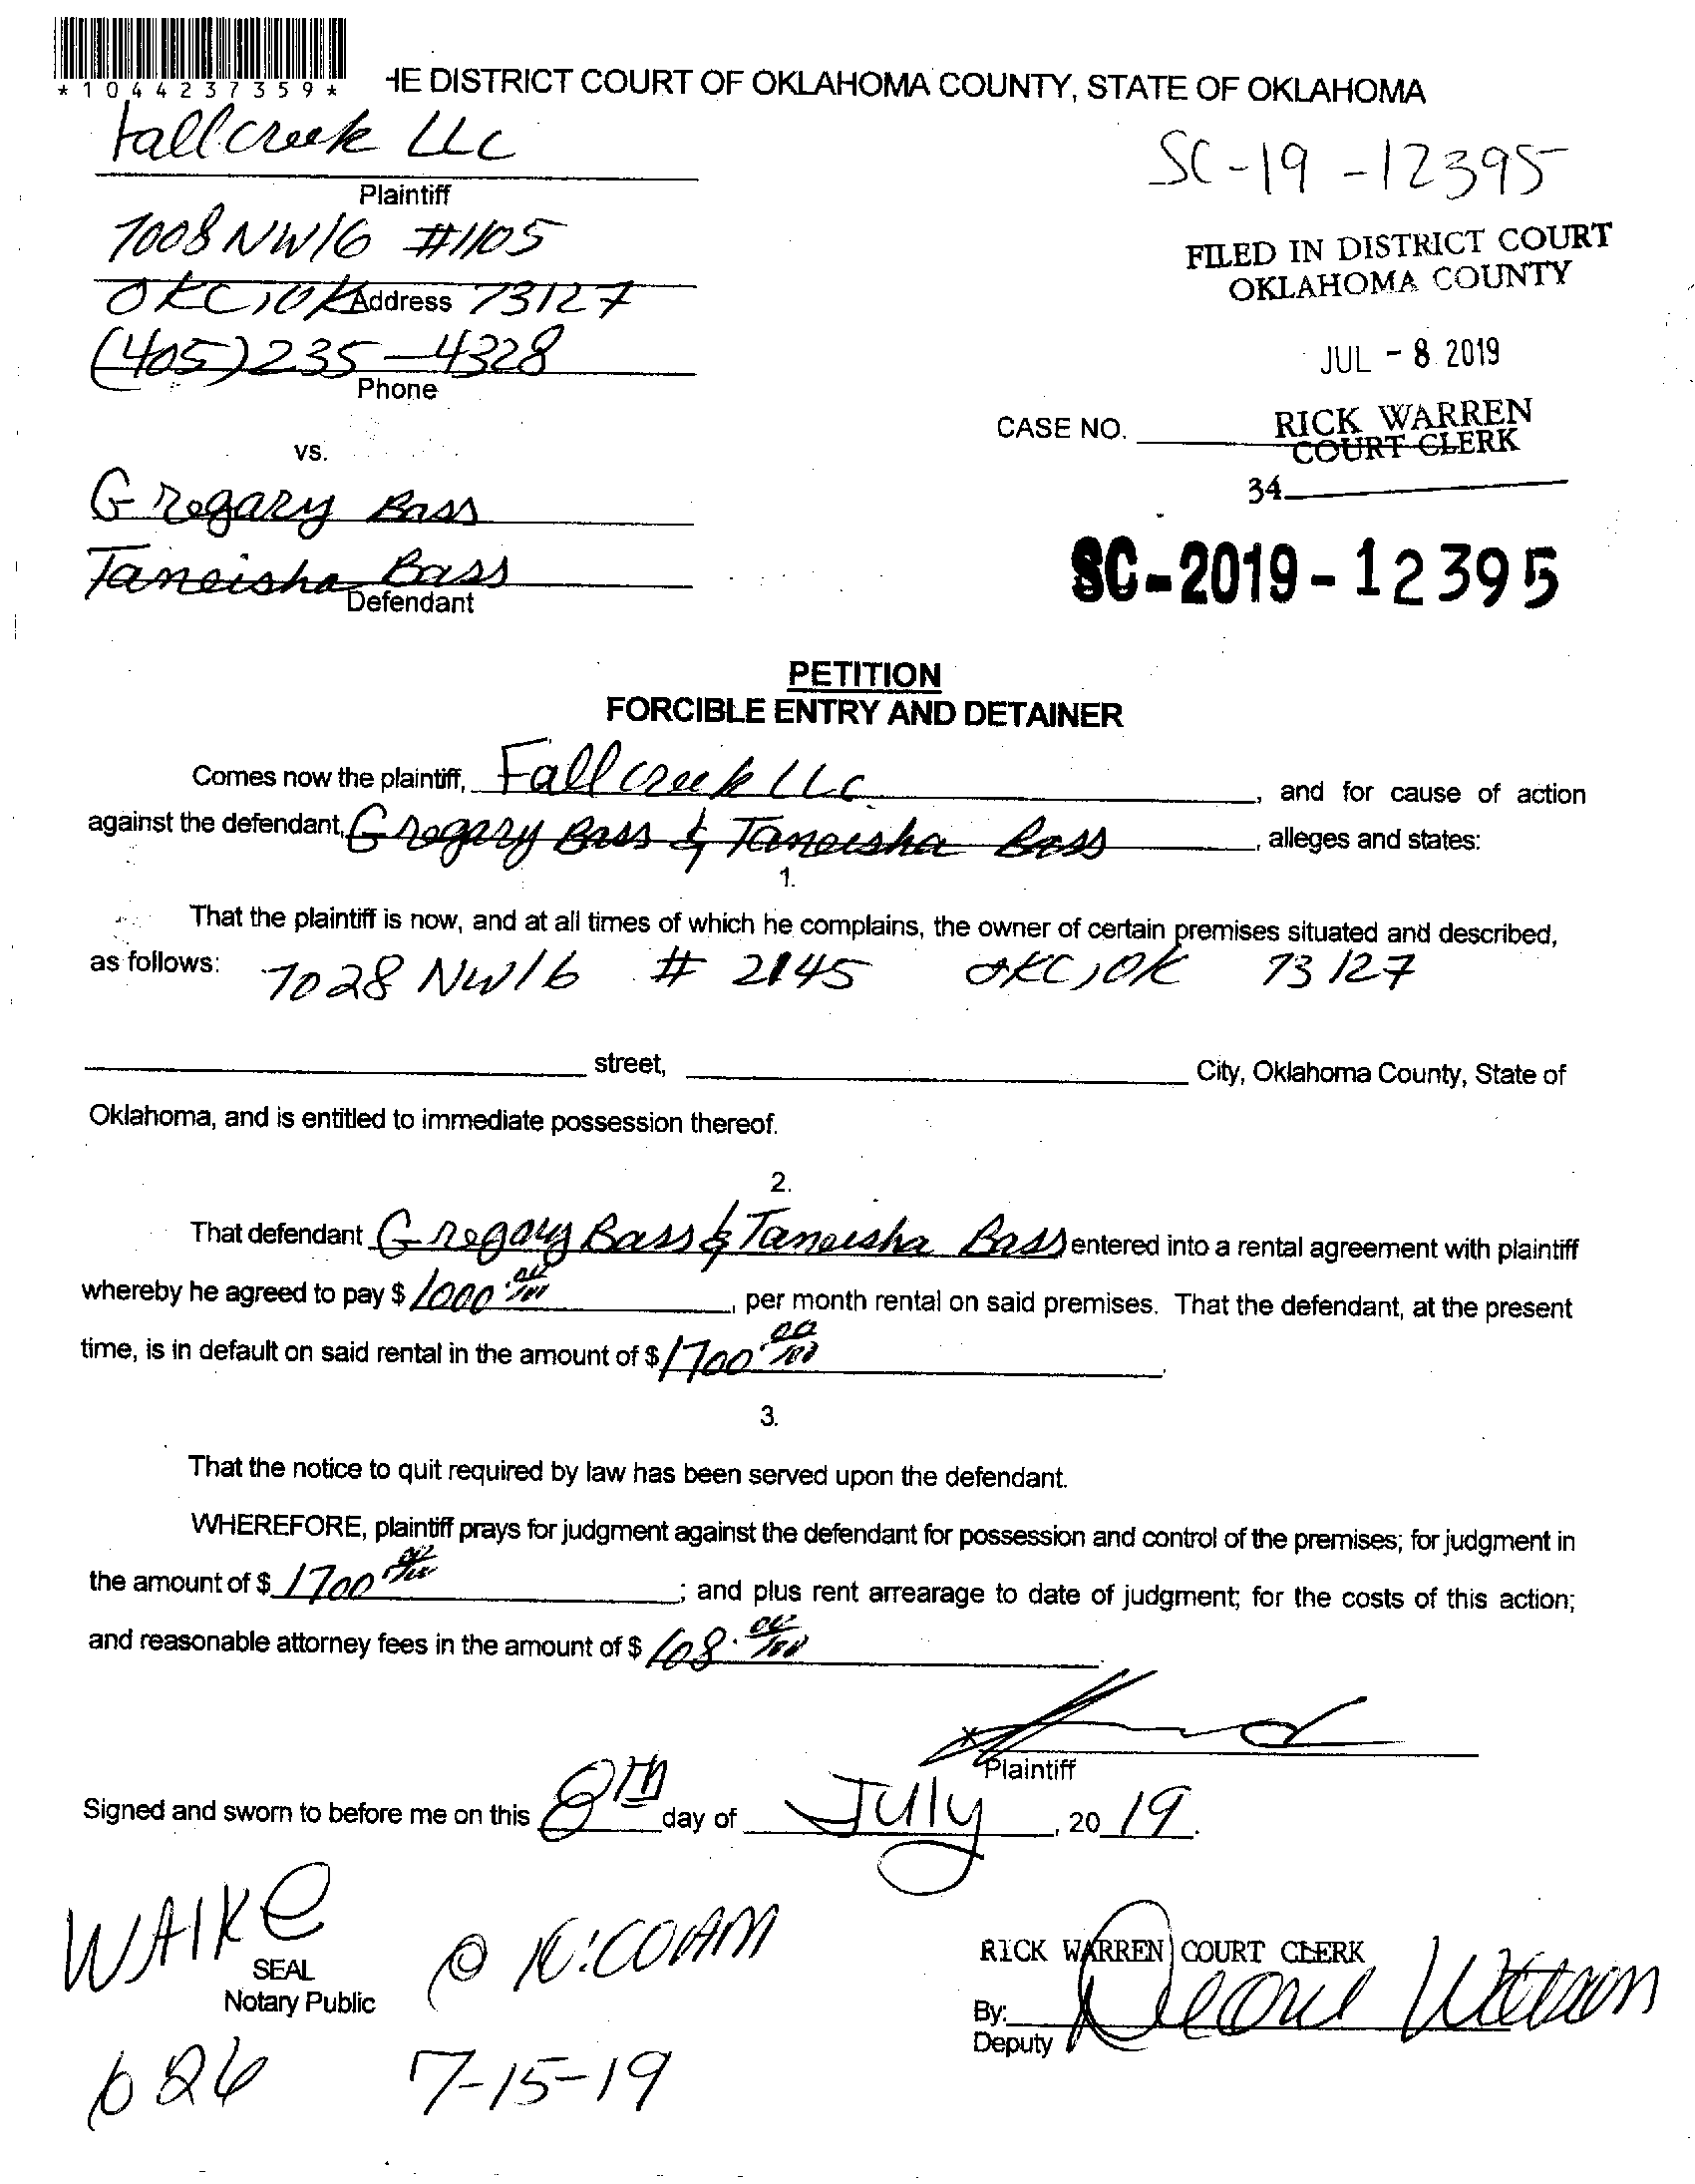 *1044237359*
HE DISTRICT COURT OF OKLAHOMA COUNTY, STATE OF OKLAHOMA
Fallcreek LLC
Plaintiff
SC-19-12395
7008 NW16 #1105
FILED IN DISTRICT COURT
OKLAHOMA COUNTY
OKC, OK 73127
Address
(405) 235-4328
Phone
JUL - 8 2019
CASE NO.
RICK WARREN
COURT CLERK
vs.
34
Gregary Bass
Taneisha Bass
Defendant
SC-2019-12395
PETITION
FORCIBLE ENTRY AND DETAINER
Comes now the plaintiff, Fallcreek LLC, and for cause of action
against the defendant, Gregary Bass & Taneisha Bass, alleges and states:
1.
That the plaintiff is now, and at all times of which he complains, the owner of certain premises situated and described,
as follows: 7028 NW16 # 2145 OKC, OK 73127
street, City, Oklahoma County, State of
Oklahoma, and is entitled to immediate possession thereof.
2.
That defendant Gregary Bass & Taneisha Bass entered into a rental agreement with plaintiff
whereby he agreed to pay $ 1000.00/100, per month rental on said premises. That the defendant, at the present
time, is in default on said rental in the amount of $ 1700.00/100.
3.
That the notice to quit required by law has been served upon the defendant.
WHEREFORE, plaintiff prays for judgment against the defendant for possession and control of the premises; for judgment in
the amount of $ 1700.00/100; and plus rent arrearage to date of judgment; for the costs of this action;
and reasonable attorney fees in the amount of $ 108.00/100.
X
Plaintiff
Signed and sworn to before me on this 8TH day of July, 2019.
WAIKE @ 10:00AM
SEAL
Notary Public
RICK WARREN COURT CLERK
By:
Deputy
626 7-15-19